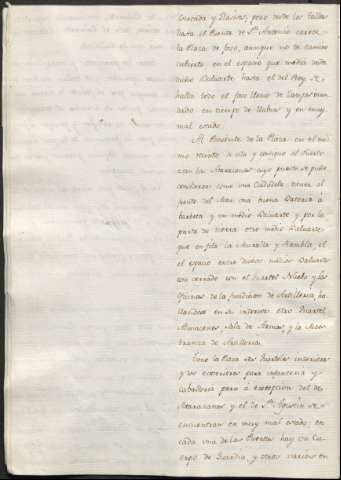 Cortada y Llanas, pero desde los Tallers
hasta el Frente de Sn. Antonio carece
la Plaza de foso, aunque no de camino
cubierto en el espacio que media desde
dicho Baluarte hasta el del Rey se
halla todo el foso lleno de
en tiempo de lluvias y en muy
mal estado.
Al Poniente de la Plaza en el mis
mo recinto de ella y contiguo al Puerto
estan las Atarazanas cuyo puesto se puede
considerar como una Ciudadela: tienen al
frente del Mar una buena Bateria á
barbeta y un medio Baluarte y por la
parte de tierra otro medio Baluarte
que enfila la Muralla y Rambla, el
el espacio entre dichos medios Baluartes
está cerrado con el Quartel Nuevo y las
Oficinas de la fundicion de Artilleria, ha
llandose en su interior otro Quartel
Almacenes, Sala de Armas, y la Maes
tranza de Artilleria.
Tiene la Plaza seis Quarteles interiores
y dos exteriores para infanteria y
Caballeria pero á excepcion del de
Atarazanas, y el de Sn. Agustin se
encuentran en muy mal estado: en
cada una de las Puertas hay un Cu
erpo de Guardia, y otros varios en